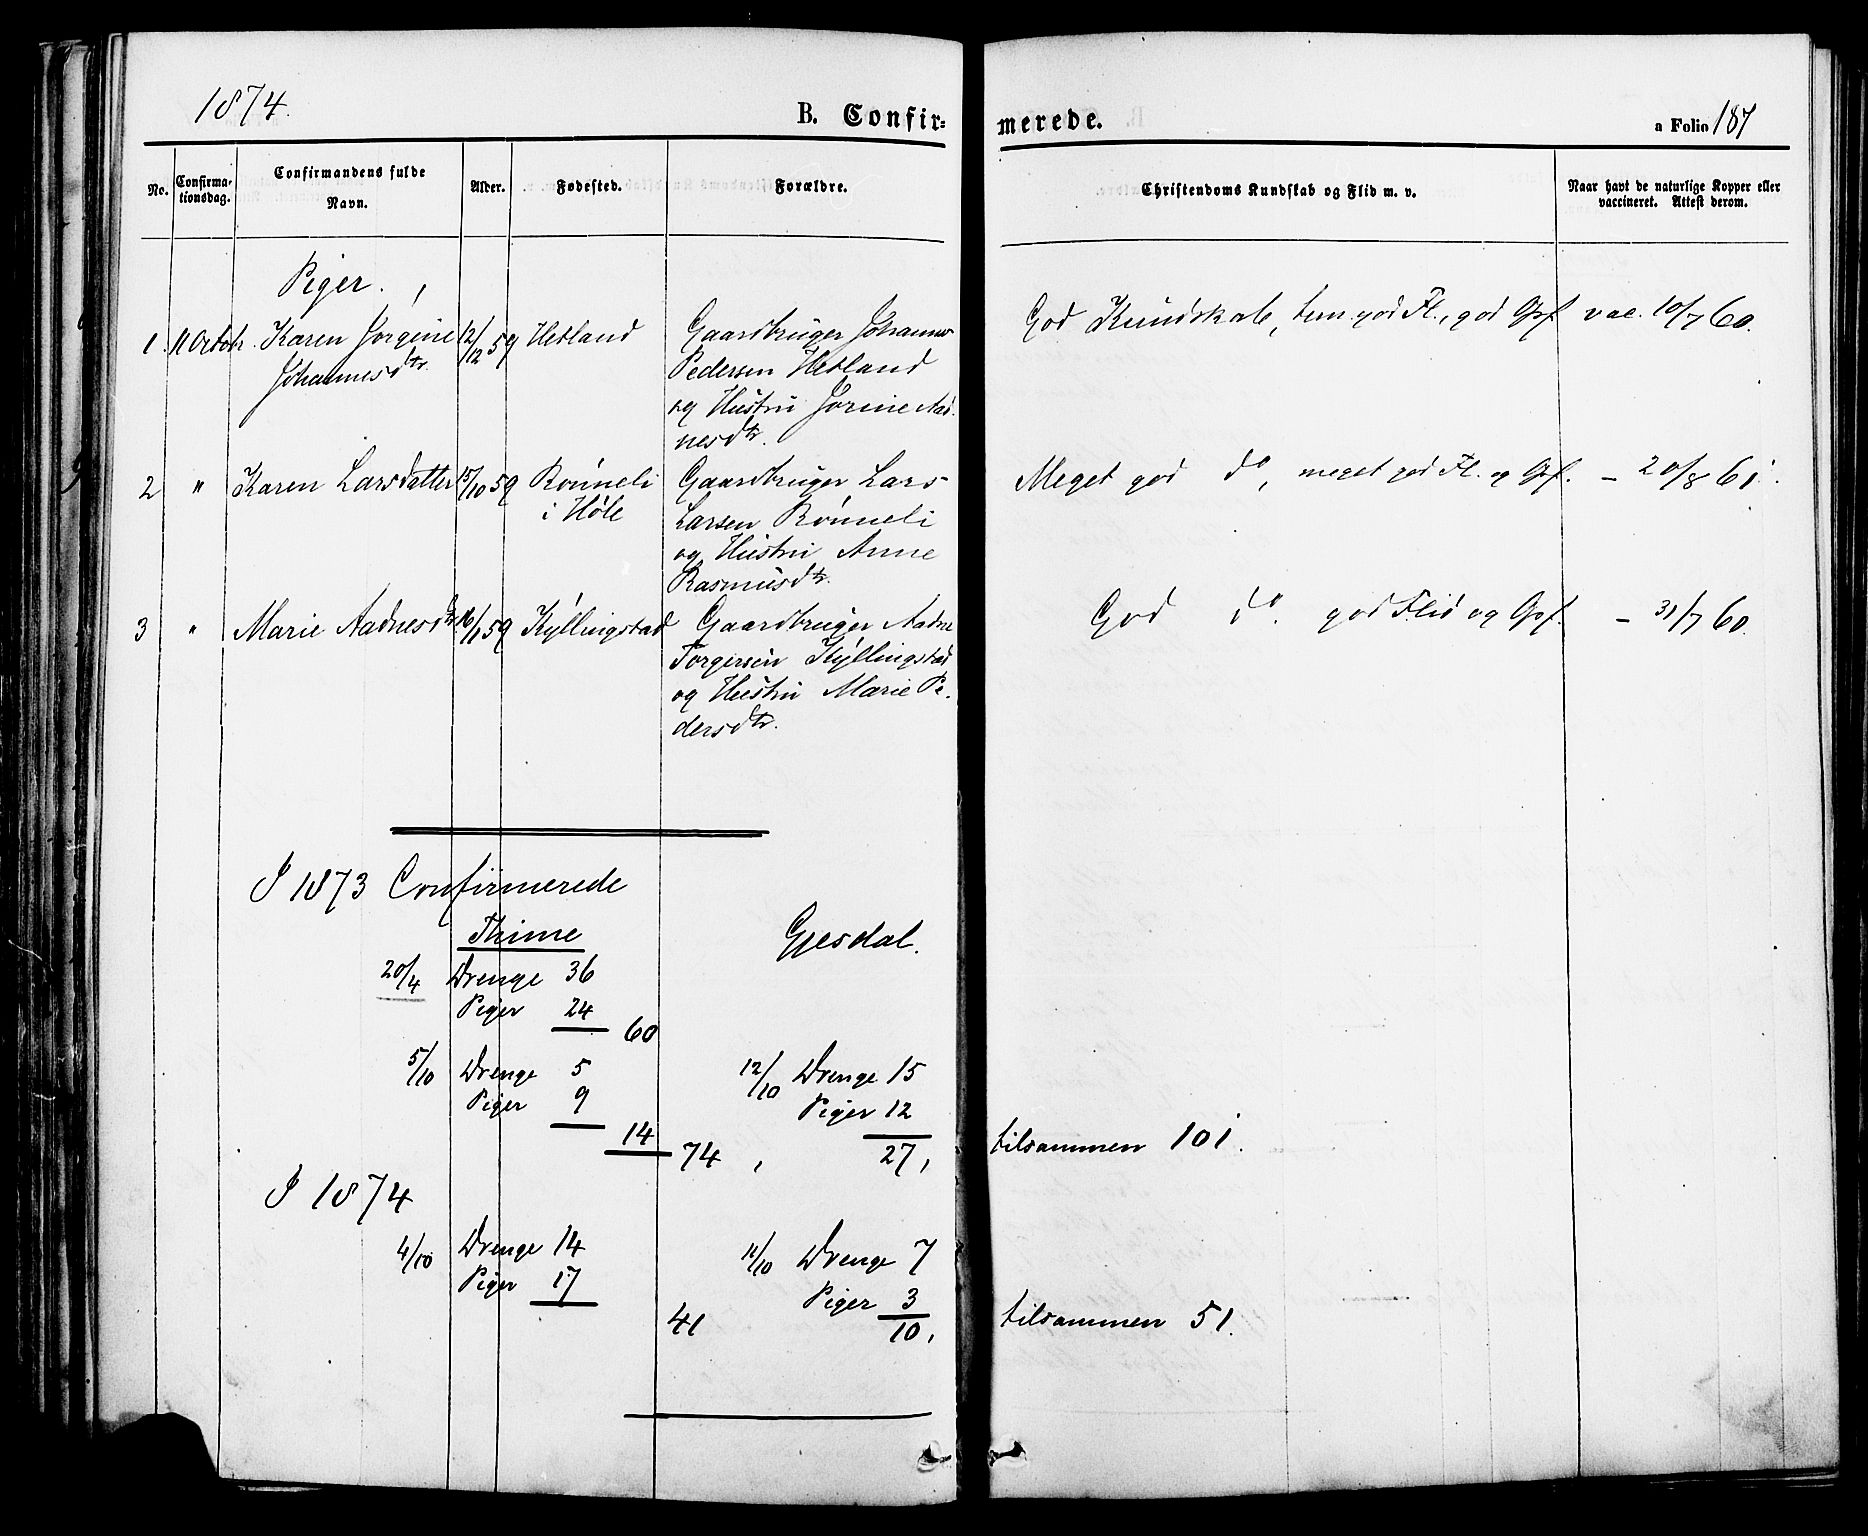 1874.
B. Confir=
merede.
a Folio 187
No.
Confirma-
tionsdag.
Confirmandens fulde
Navn.
Alder.
Fødested.
Forældre.
Christendoms Kundskab og Flid m. v.
Naar havt de naturlige Kopper eller
vaccineret. Attest derom.
Piger.
1 11 Octobr. Karen Jorgine 12/12 59 Hetland Gaardbruger Johannes God Kundskab, tem. god Fl., god Opf. vac. 10/7 60.
Johannesdtr. Pedersen Hetland
og Hustru Jorine Aad-
nesdtr.
2 " Karen Larsdatter 15/10 59 Rønneli Gaardbruger Lars Meget god do, meget god Fl. og Opf. - 20/8 61.
i Høle Larsen Rønneli
og Hustru Anne
Rasmusdtr.
3 " Marie Aadnesdtr. 16/1 59 Kyllingstad Gaardbruger Aadne God do. god Flid og Opf. - 31/7 60.
Torgersen Kyllingstad
og Hustru Marie Pe-
dersdtr.
I 1873 Confirmerede
Thime Gjesdal.
20/4 Drenge 36
Piger 24
60
5/10 Drenge 5 12/10 Drenge 15
Piger 9 Piger 12
14
74, 27, tilsammen 101.
I 1874
4/10 Drenge 14 11/10 Drenge 7
Piger 17 Piger 3
41 10, tilsammen 51.